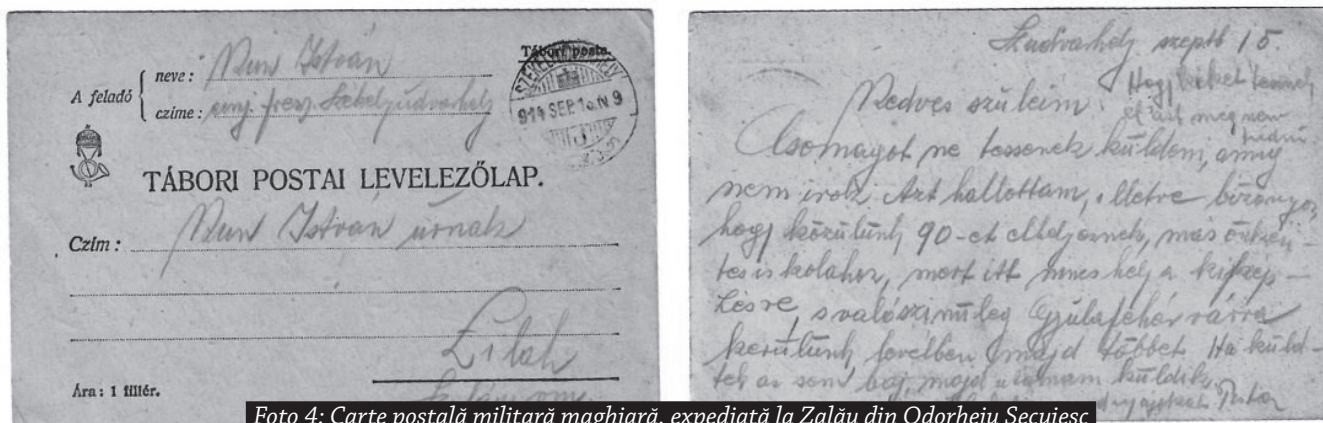 A feladó
neve : István
czíme : Székelyudvarhely
Tábori posta.
914 SEP
TÁBORI POSTAI LEVELEZŐLAP.
Czím : István úrnak
Zilah
Ára : 1 fillér.
Szudvarhely szeptb 15
Kedves szüleim!
Hogy kiket tesznek
el azt meg nem
tudni
Csomagot ne tessenek küldeni, amig
nem irok. Azt hallottam, illetve bizonyos,
hogy közülünk 90-et elhelyeznek, más önkén-
tes iskolához, mert itt nincs hely a kikép-
zésre, s valószinüleg Gyulafehérvárra
kerülünk, levélben majd többet. Ha küld-
tek az sem baj, majd utánam küldik.
Foto 4: Carte poștală militară maghiară, expediată la Zalău din Odorheiu Secuiesc